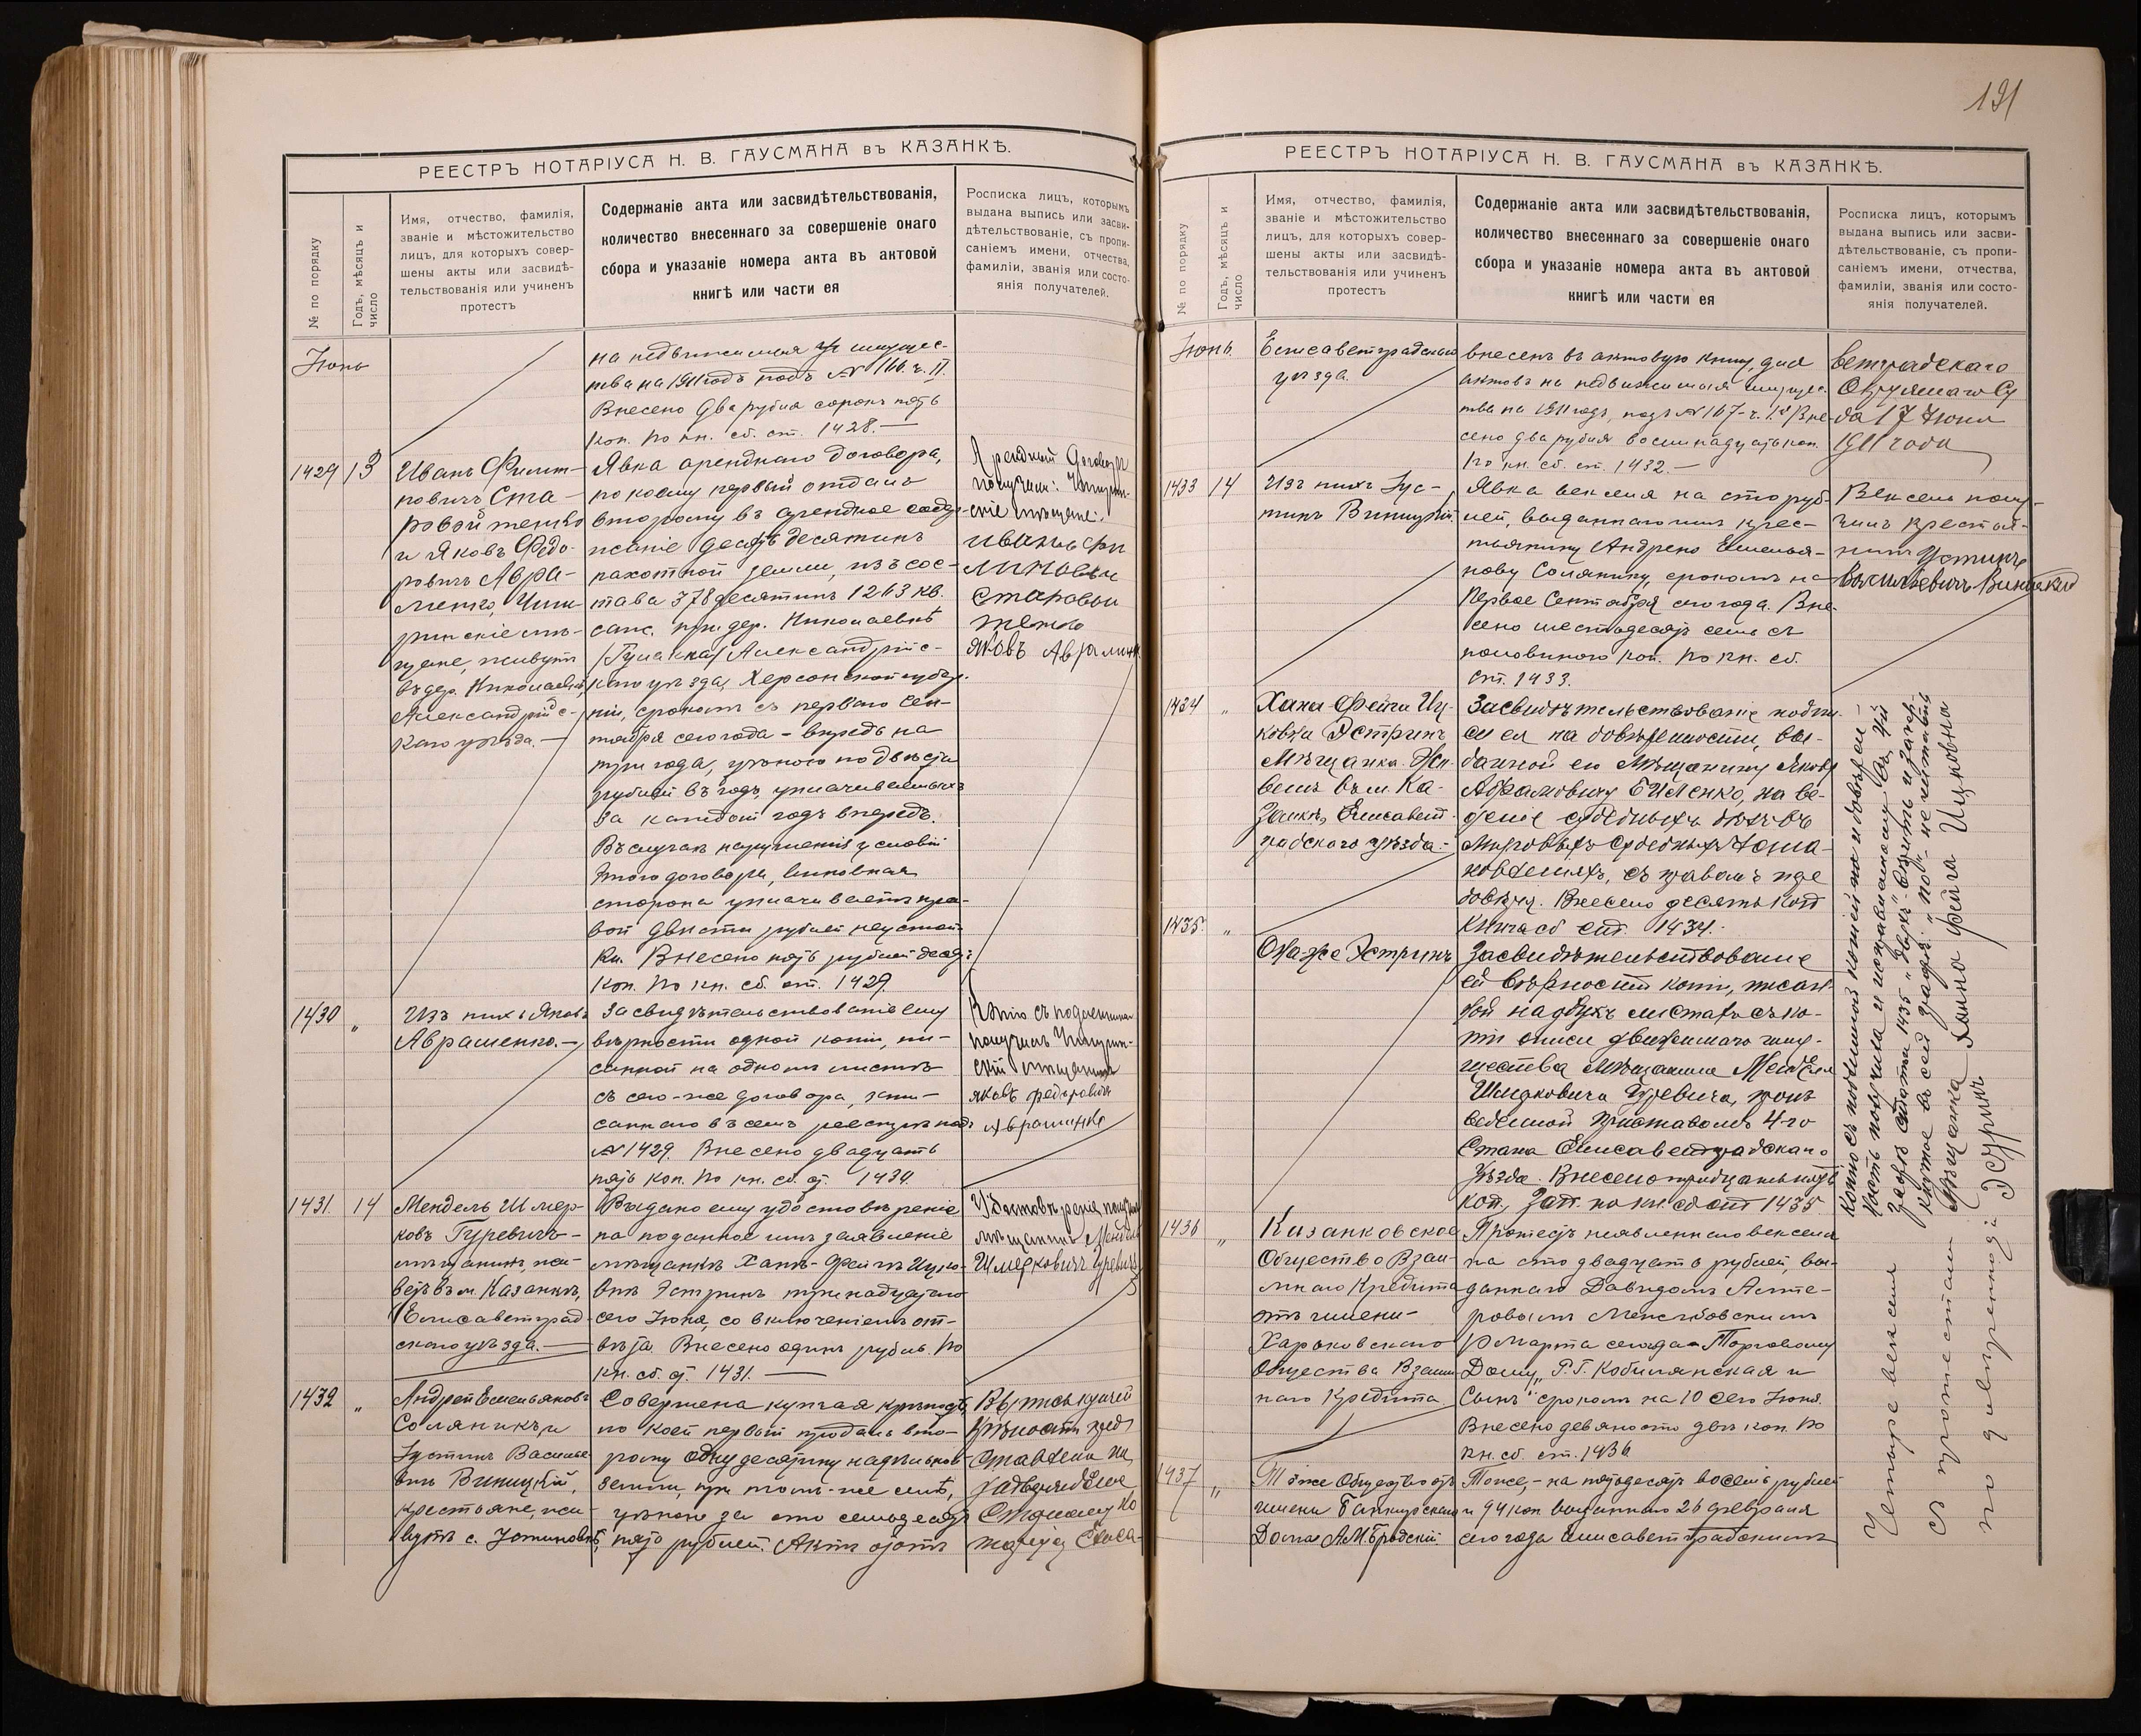 РЕЕСТРЪ НОТАРІУСА Н. В. ГАУСМАНА въ КАЗАНКѢ.
№ по порядку
Годъ, мѣсяцъ и число
Имя, отчество, фамилія,
званіе и мѣстожительство
лицъ, для которыхъ совер-
шены акты или засвидѣ-
тельствованія или учиненъ
протестъ
Содержаніе акта или засвидѣтельствованія,
количество внесеннаго за совершеніе онаго
сбора и указаніе номера акта въ актовой
книгѣ или части ея
Росписка лицъ, которымъ
выдана выпись или засви-
дѣтельствованіе, съ пропи-
саніемъ имени, отчества,
фамиліи, званія или состо-
янія получателей.
Іюнь
на недвижимыя имущес-
тва на 1911 годъ подъ № 166. ч. II.
Внесено два рубля сорокъ пять
коп. по кн. сб. ст. 1428.
1429 13
Иванъ Филип-
повичъ Ста-
ровойтенко
и Яковъ Федо-
ровичъ Авра-
менко,
мѣ-
щане, живутъ
въ дер. Николаевкѣ,
Александрійс-
каго уѣзда.
Явка аренднаго договора,
по коему первый отдалъ
второму въ арендное содер-
жаніе десять десятинъ
пахотной земли, изъ сос-
тава 378 десятинъ 1263 кв.
саж. при дер. Николаевкѣ
Александрійс-
каго уѣзда, Херсонской губер-
ніи, срокомъ съ перваго Сен-
тября сего года - впредь на
три года, цѣною по двѣсти
рублей въ годъ, уплачиваемыхъ
за каждый годъ впередъ.
Въ случаѣ нарушенія условій
этого договора, виновная
сторона уплачиваетъ пра-
вой двѣсти рублей неустой-
ки. Внесено пять рублей десять
коп. по кн. сб. ст. 1429.
Арендный договоръ
получили:
мѣщане:
Иванъ Фи
липовичъ
Старовой
тенко
Яковъ Авраменк.
1430 "
Изъ нихъ Яковъ
Авраменко.
Засвидѣтельствованіе ему
вѣрности одной копіи, пи-
санной на одномъ листѣ
съ сего-же договора, запи-
саннаго въ семъ реестрѣ подъ
№ 1429. Внесено двадцать
пять коп. по кн. сб. ст. 1430
Копію съ подлинникомъ
получилъ
мѣщанинъ
Яковъ Федоровичъ
Авраменко
1431 14
Мендель Шмер-
ковъ Гуревичъ -
мѣщанинъ, жи-
ветъ въ м. Казанкѣ,
Елисаветград-
скаго уѣзда.
Выдано ему удостовѣреніе
на поданное имъ заявленіе
мѣщанкѣ Ханѣ-Фейгѣ Ицко-
внѣ Эстринъ тринадцатаго
сего Іюня, со включеніемъ от-
вѣта. Внесено одинъ рубль. По
кн. сб. ст. 1431.
Удостовѣреніе получилъ
мѣщанинъ Мендель
Шмерковичъ Гуревичъ
1432 "
Андрей Емельяновъ
Соляникъ и
Іустинъ Василье-
вичъ Виницкій,
крестьяне, жи-
вутъ с. Устиновкѣ,
Совершена купчая крѣпость,
по коей первый продалъ вто-
рому одну десятину надѣльной
земли, при томъ-же селѣ,
цѣною за сто семьдесятъ
пять рублей. Актъ этотъ
Выпись купчей
крѣпости пред
ставлена на
утвержденіе
Старшему Но
таріусу Елиса-
191
РЕЕСТРЪ НОТАРІУСА Н. В. ГАУСМАНА въ КАЗАНКѢ.
№ по порядку
Годъ, мѣсяцъ и число
Имя, отчество, фамилія,
званіе и мѣстожительство
лицъ, для которыхъ совер-
шены акты или засвидѣ-
тельствованія или учиненъ
протестъ
Содержаніе акта или засвидѣтельствованія,
количество внесеннаго за совершеніе онаго
сбора и указаніе номера акта въ актовой
книгѣ или части ея
Росписка лицъ, которымъ
выдана выпись или засви-
дѣтельствованіе, съ пропи-
саніемъ имени, отчества,
фамиліи, званія или состо-
янія получателей.
Іюнь.
Елисаветградскаго
уѣзда.
внесенъ въ актовую книгу для
актовъ на недвижимыя имущес-
тва на 1911 годъ, подъ № 167 - ч. II. Вне-
сено два рубля восемнадцать коп.
По кн. сб. ст. 1432.
ветградскаго
Окружнаго Су
да 17 Іюня
1911 года
1433 14
Изъ нихъ Іус-
тинъ Виницкій.
Явка векселя на сто руб-
лей, выданнаго имъ крес-
тьянину Андрею Емелья-
нову Солянику, срокомъ на
Первое Сентября сего года. Вне-
сено шестьдесятъ семь съ
половиною коп. по кн. сб.
ст. 1433.
Вексель полу-
чилъ крестья-
нинъ Устинъ
Васильевичъ Виницкій
1434 "
Хана Фейга Иц-
ковна Эстринъ
Мѣщанка. Жи-
ветъ въ м. Ка-
занкѣ, Елисавет-
градскаго уѣзда.
Засвидѣтельствованіе подпи-
си ея на довѣренности, вы-
данной ею Мѣщанину Якову
Абрамовичу Биленко, на ве-
деніе судебныхъ дѣлъ въ
Мировыхъ Судебныхъ Уста-
новленіяхъ, съ правомъ пере
довѣрія. Внесено десять коп.
Книга сб ст. 1434.
1435. "
Она же Эстринъ
Засвидѣтельствованіе
ей вѣрности копіи, писан-
ной на двухъ листахъ съ ко-
піи описи движимаго иму-
щества Мѣщанина Менделя
Шмерковича Гуревича, произ
веденной Приставомъ 4-го
Стана Елисаветградскаго
Уѣзда. Внесено тридцать пять
коп. Зап. по кн. сб ст 1435.
Копію съ подлинной копіей на и довѣрен-
ность получила
Мѣщанка Хана Фейга Ицковна
Эстринъ
1436 "
Казанковское
Общество Взаи-
мнаго Кредита
отъ имени
Харьковскаго
Общества Взаим
наго Кредита
Протестъ неявленнаго векселя
на сто двадцать рублей, вы-
даннаго Давидомъ
10 Марта сего года Торговому
Дому „Р. Г. Кобылянская и
Сынъ" срокомъ на 10 сего Іюня.
Внесено девяносто двѣ коп. По
кн. сб. ст. 1436
1437 "
Тоже Общество отъ
имени Банкирскаго
Дома А М. Бродскій
Тоже, - на пятьдесятъ восемь рублей
и 94 коп выданнаго 26 февраля
сего года Елисаветградскимъ
Четыре векселя
съ протестами
по довѣренности